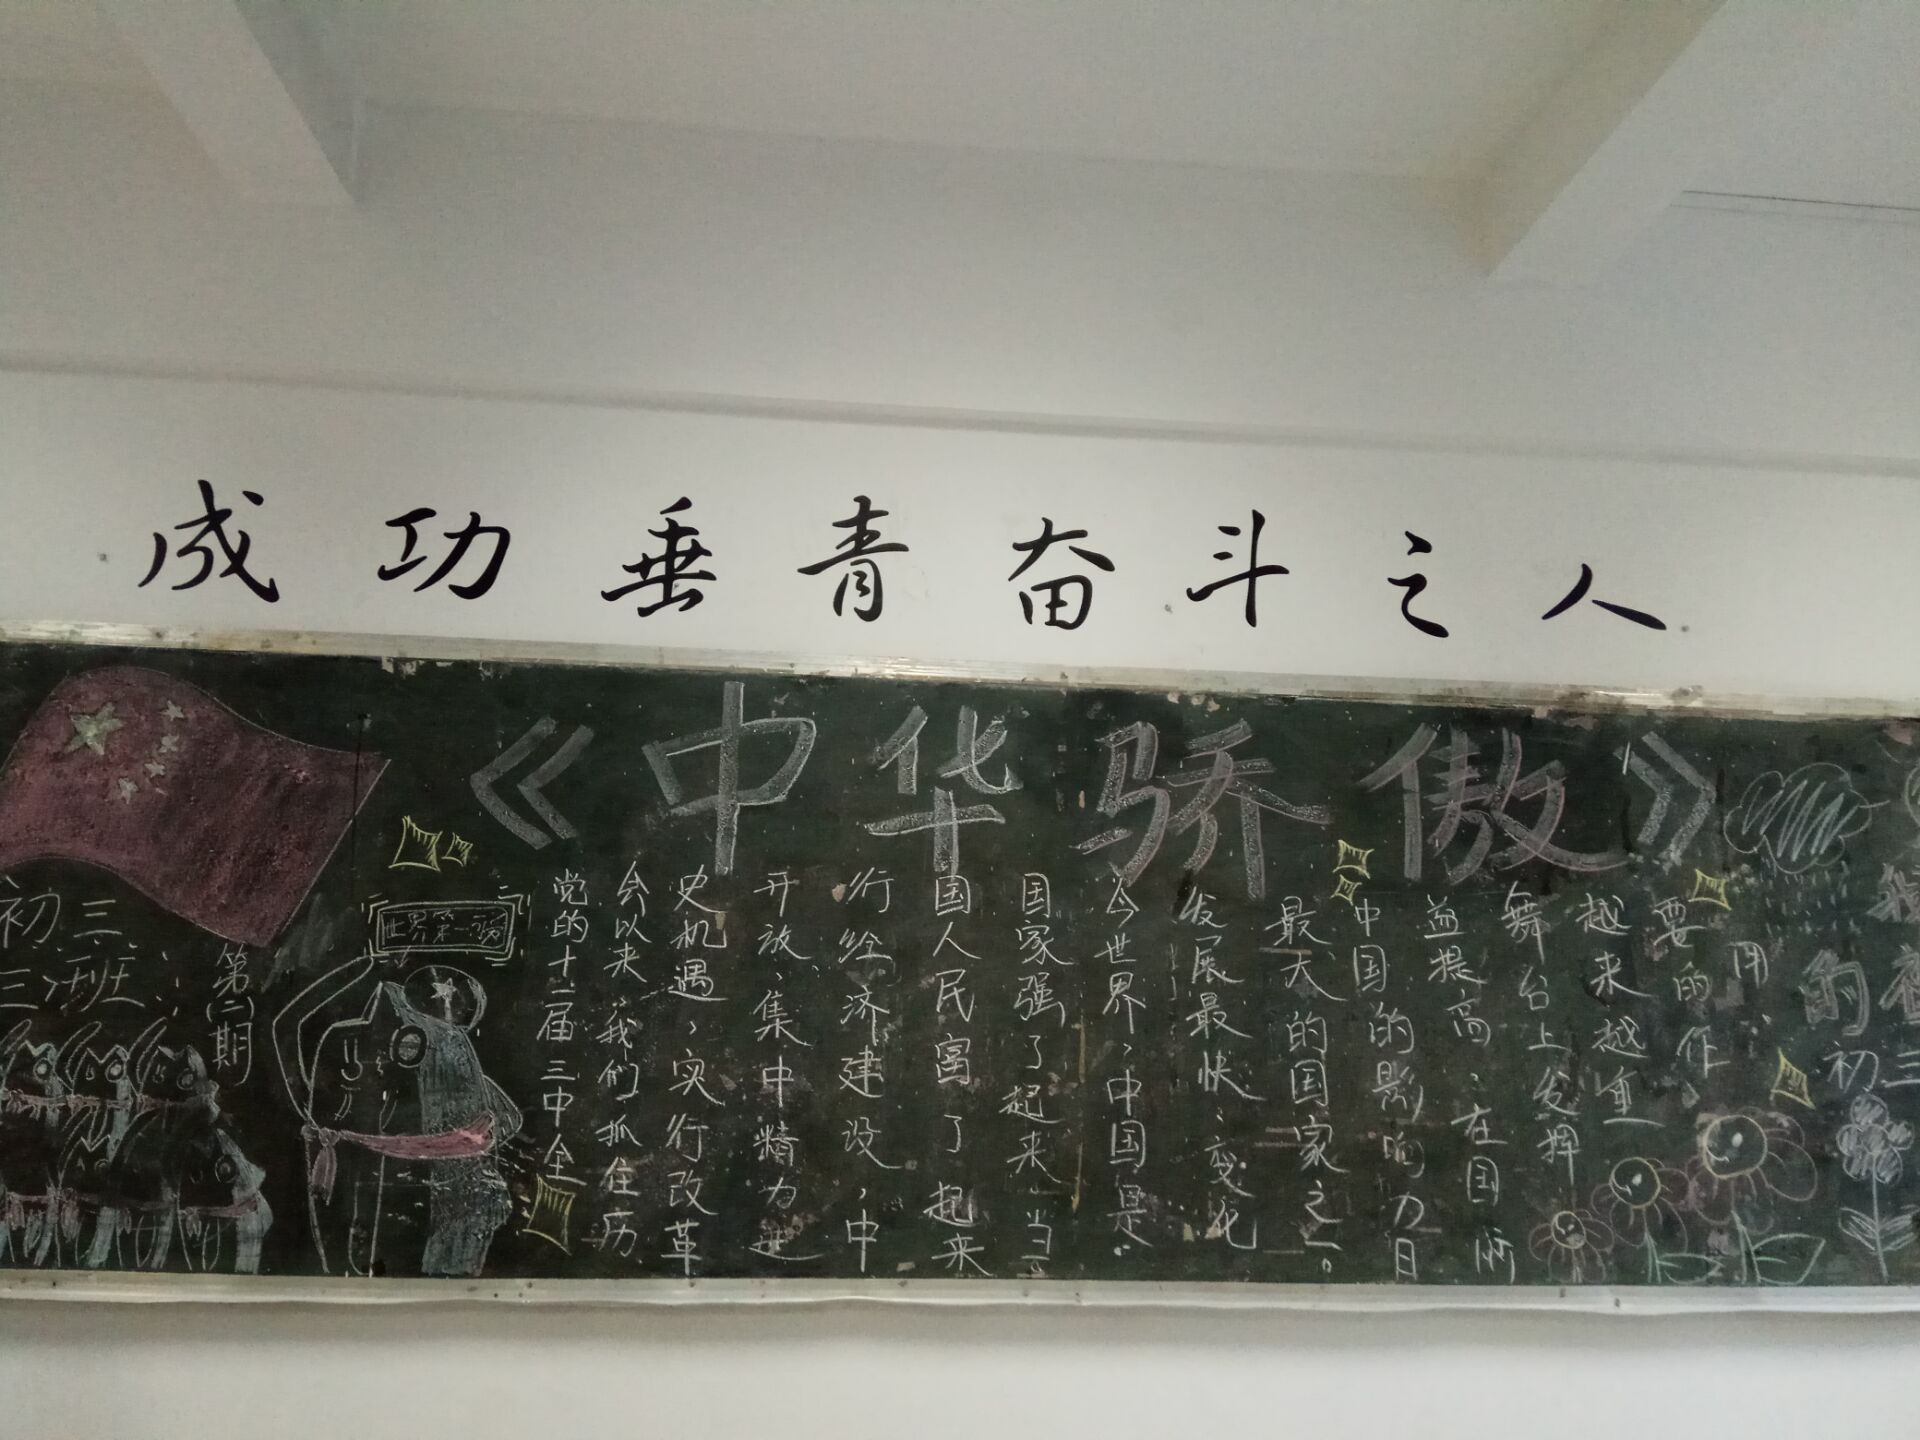 成功垂青奋斗之人
《中华骄傲》
初三
三班
第二期
世界第一
党的十一届三中全
会以来,我们抓住历
史机遇,实行改革
开放,集中精力进
行经济建设,中
国人民富了起来
国家强了起来"当
今世界,中国是
发展最快,变化
最大的国家之一。
中国的影响力日
益提高,在国际
舞台上发挥
越来越重
要的作
用
我
的
初三